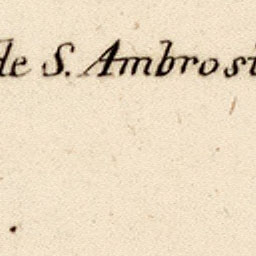 de S. Ambrosi